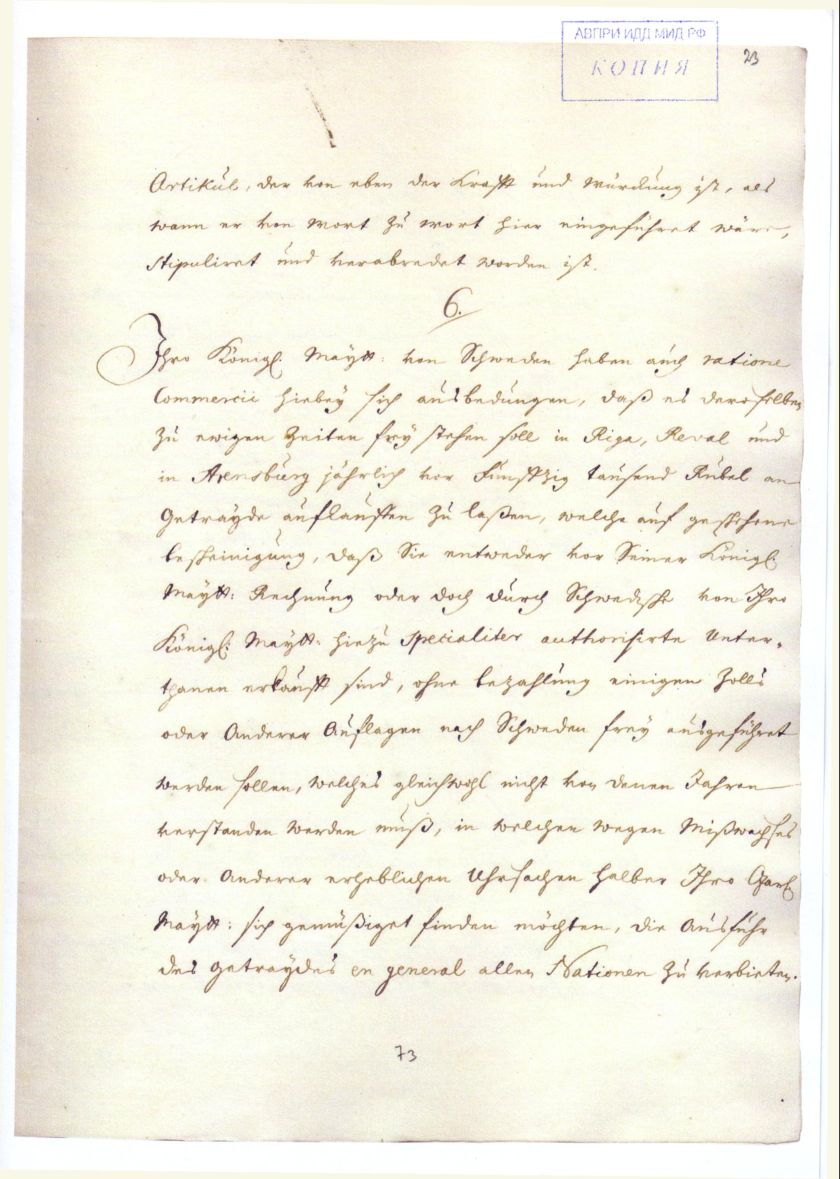 АВПРИ ИДД МИД РФ
КОПИЯ
23
Articul, der von eben der Krafft und Würckung ist, als
wann er von Wort zu Wort hier eingeführet wäre,
stipuliret und verabredet worden ist.
6.
Ihro Königl. Maytt: von Schweden haben auch ratione
Commercii hiebey sich ausbedungen, daß es deroselben
zu ewigen Zeiten frey stehen soll in Riga, Reval und
in Arensburg jährlich vor Funffzig tausend Rubel an
Getrayde auffkauffen zu laßen, welche auf geschehene
bescheinigung, daß Sie entweder vor Seiner Königl.
Maytt: Rechnung oder doch durch Schwedische von Ihro
Königl: Maytt: hiezu specialiter authorisirte Unter-
thanen erkaufft sind, ohne bezahlung einigen Zolls
oder Anderer Auflagen nach Schweden frey ausgeführet
werden sollen, welches gleichwohl nicht von denen Jahren
verstanden werden muß, in welchen wegen Mißwachses
oder Anderer erheblichen Uhrsachen halber Ihro Czarl.
Maytt: sich gemüßiget finden möchten, die Ausfuhr
des getraydes en general allen Nationen zu verbieten.
73